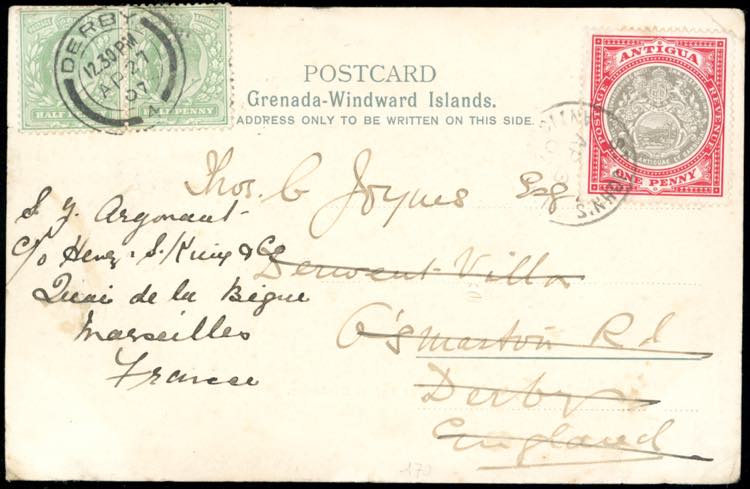 DERBY
12.30 PM
AP 27
07
HALF PENNY
ANTIGUA
POSTAGE
REVENUE
ONE PENNY
POSTCARD
Grenada-Windward Islands.
ADDRESS ONLY TO BE WRITTEN ON THIS SIDE.
Thos. G Joynes Esq
Derwent Villa
Osmaston Rd
Derby
England
S. Y. Argonaut
c/o Henry S. King & Co
Quai de la Bigue
Marseilles
France
170